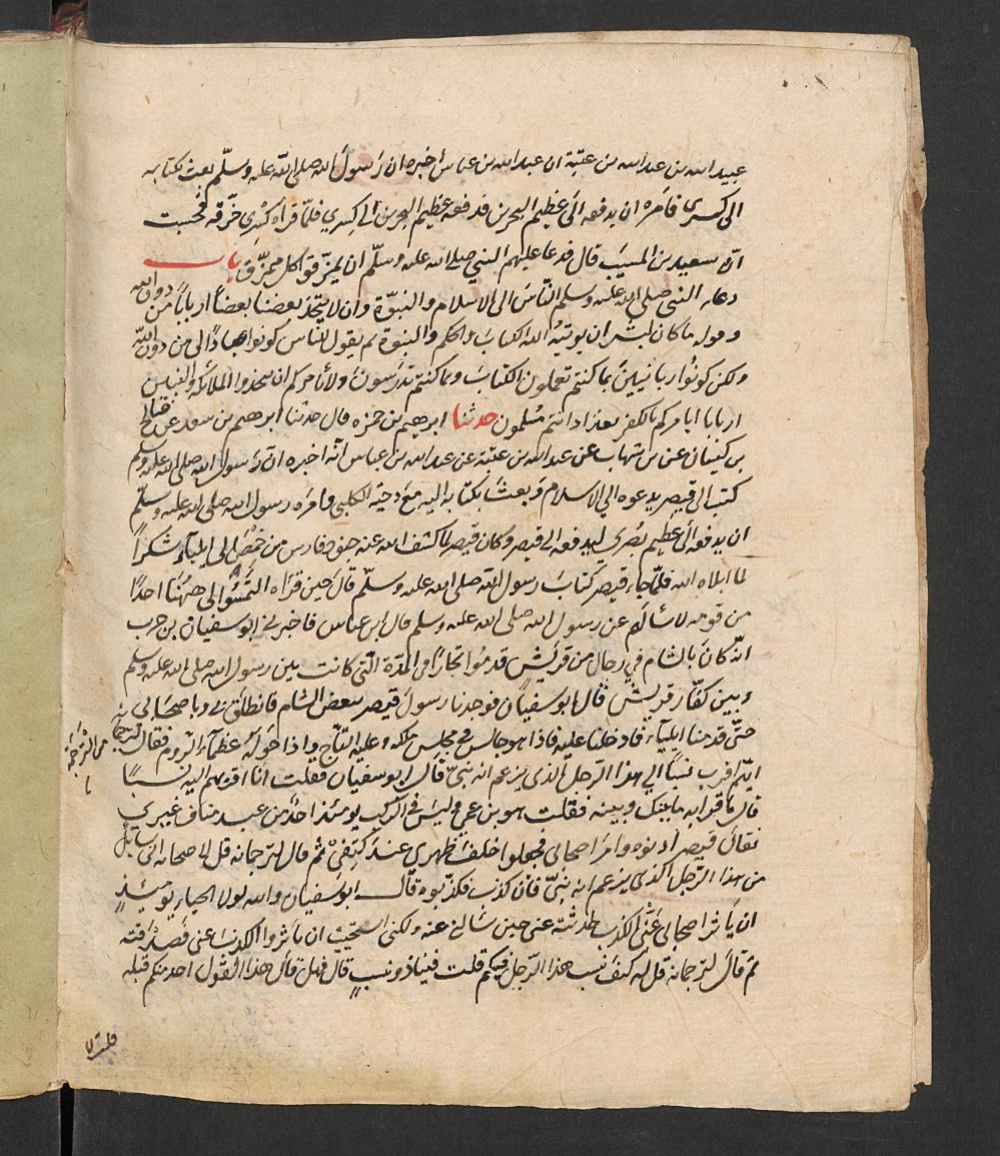 عبيد الله بن عبد الله بن عتبة ان عبد الله بن عباس اخبره ان رَسولَ الله صلى الله عليه وسلّم بعث بكتابه
الى كسرى فامَره ان يدفعه الى عَظيم البحرين فدفعه عَظيم البحرين الى كسرى فلمّا قرأه كِسْرى خرّقه فحسبت
انّ سعيد بن المسيَب قال فدعا عليهم النبي صلى الله عليه وسلّم ان يمزّقوا كل ممزّق باب
دعاء النبي صلى الله عليه وسلم النّاسَ الى الاسلام والنبوّة وان لا يتخذ بعضنا بعضاً ارباباً من دون الله
وقوله ما كان لبشر ان يوتيه الله الكتابَ والحكم والنبوة ثم يقول للناس كونوا عباداً لى من دون الله
ولكن كونُوا ربانيينَ بما كنتم تعلمون الكتابَ وبما كنتم تدرسُونَ ولا يأمركم ان تتخذوا الملائكة والنبيين
اربابا ايامركم بالكفر بعد اذ انتم مُسلمون حدثنا ابرهيم بن حمزه قال حدثنا ابرهيم بن سعد عن صَالح
بن كيسَان عن بن شهاب عن عبيد الله بن عتبة عن عبد الله بن عباس انّه اخبره ان رَسول الله صلى الله عليه وسلم
كتب الى قيصر يدعوه الى الاسلام وَبعثَ بكتابه اليه معَ دحية الكلبي وامَره رسول الله صلى الله عليه وسلّم
ان يدفعه الى عظيم بُصْرى ليدفعه الى قيصر وكان قيصر لما كشف الله عنه جنود فارس من حمْصَ الى ايلياء شكراً
لما ابلاه الله فلمّا جاء قيصرَ كتابَ رسول الله صلى الله عليه وسلّم قال حين قرأه التمسُوا لى هٰهُنَا احدًا
من قومه لاسألهم عن رسول الله صلى الله عليه وسلم قال بن عباس فاخبرنى ابو سفيان بن حرب
انّه كانَ بالشام في رجال من قريش قدمُوا تجارًا في المدّة الّتي كانت بين رسول الله صلى الله عليه وسلم
وبين كفّار قريش قال ابو سفيان فوجدنا رسولَ قيصر ببعض الشام فانطلَق بى وباصحابي
حتّى قدمنا ايلياء فادخلنا عليه فاذا هو جالس في مجلس ملكه وعليه التّاج واذا حولَهُ عظماءُ الروم فقال لترجمانه
من الترجمة
ايّهم اقرب نسبًا الى هذا الرّجل الذى يزعم انه نبىّ قال ابو سفيان فقلت انا اقربهم اليه نسبًا
قال ما قرابه ما بينك وبينه فقلت هو بن عمي وليسَ في الركب يومئذ احدٌ من عبد مناف غيرى
فقال قيصر ادنوه وامَر اصحابي فجعلوا خلفَ ظهرى عندَ كتفىْ ثم قال لترجمانه قل لاصحابه انى سائل
من هذا الرّجل الذى يزعم انه نبىّ فان كذب فكذّبوه قال ابو سفيان والله لولا الحياء يومئذٍ
ان يأثر اصحابي عَنّي الكذبَ لحدثته عنى حين سألنى عنه ولكنى استحييت ان ياثروا الكذبَ عنى فصدَقته
ثم قال لترجمانه قل له كيفَ نسب هذا الرّجل فيكم قلت فينا ذو نسبٍ قال فهل قالَ هذا القول احد منكم قبله
قلت لا